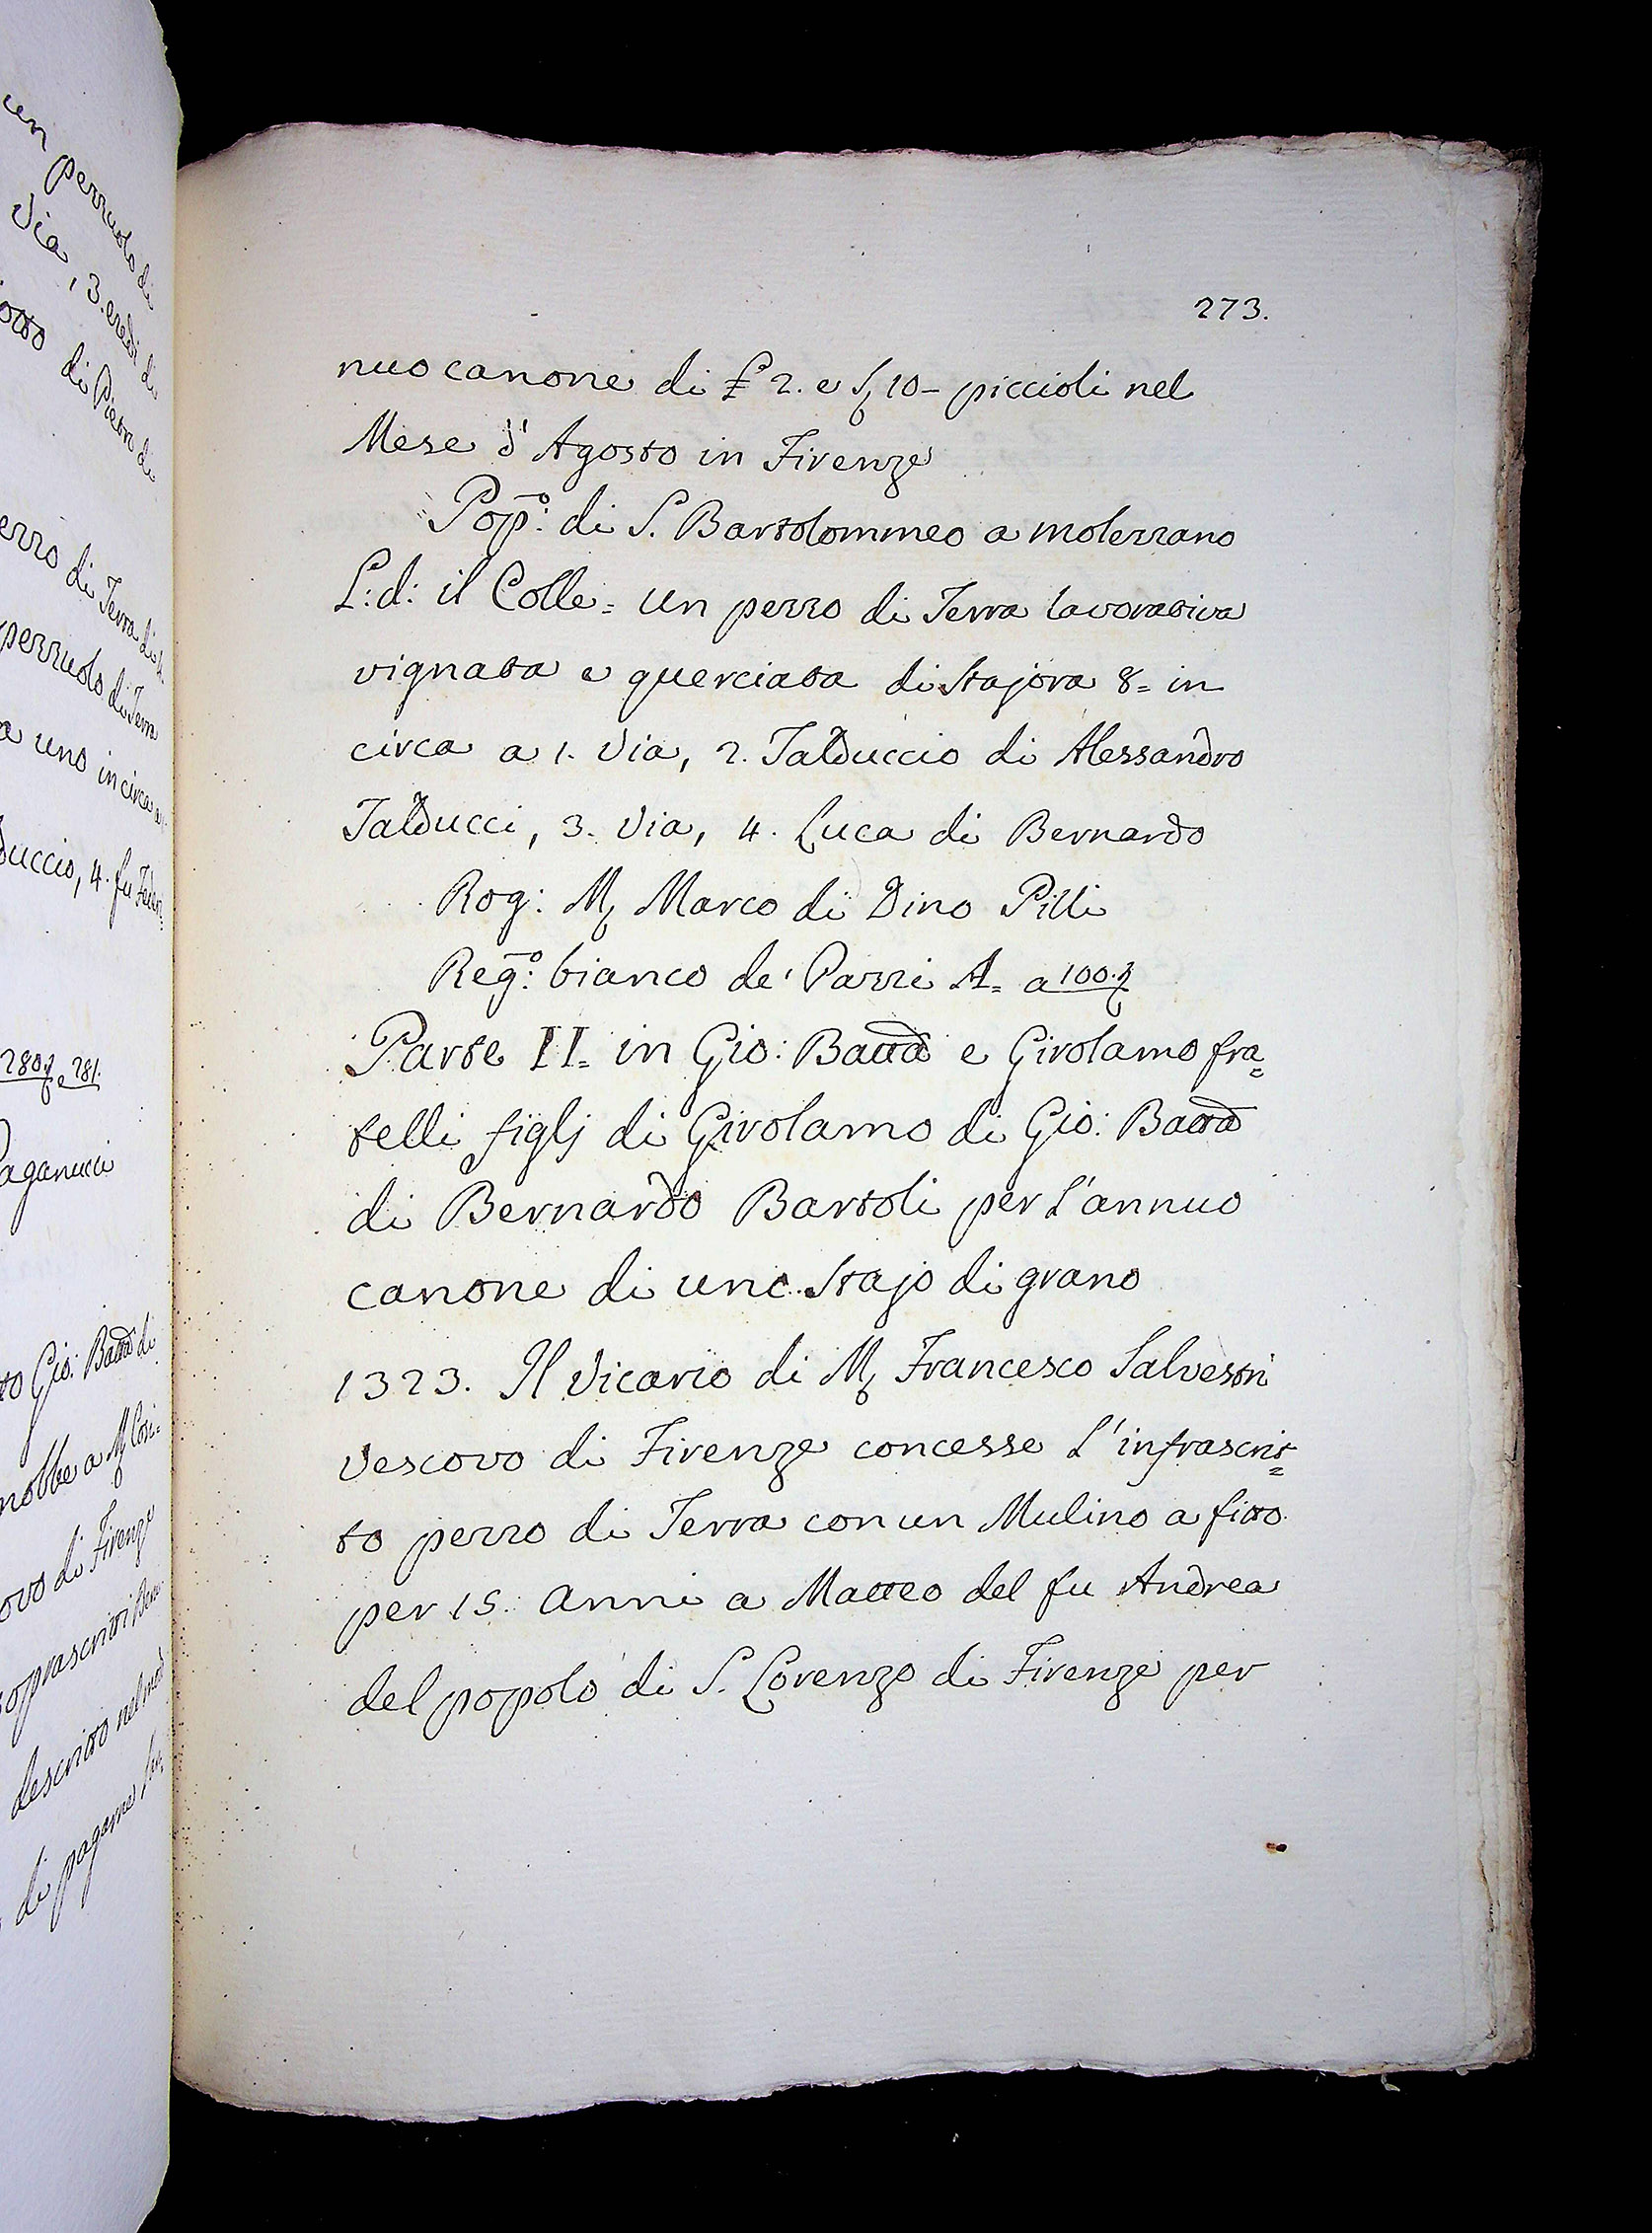 un pezzuolo di
Via, 3. eredi di
di Piero di
di Terra di
pezzuolo di Terra
a uno in circa a
duccio, 4. fu
280. e 281.
Paganucci
to Gio: Batta di
nobbe a
ovo di Firenze
soprascritti
descritto nel
di pagarne
273.
nuo canone di £ 2. e S, 10- piccioli nel
Mese d'Agosto in Firenze
Pop:o di S. Bartolommeo a molezzano
L: d: il Colle= un pezzo di Terra lavorativa
vignata e querciata di Stajora 8= in
circa a 1. Via, 2. Talduccio di Alessandro
Talducci, 3. Via, 4. Luca di Bernardo
Rog: M, Marco di Dino Pilli
Reg:o bianco de' Pazzi A= a 100.
Parte II= in Gio: Batta e Girolamo fra=
telli figlj di Girolamo di Gio: Batta
di Bernardo Bartoli per l'annuo
canone di uno Stajo di grano
1323. Il Vicario di M, Francesco Salvestri
Vescovo di Firenze concesse l'infrascrit=
to pezzo di Terra con un Mulino a fitto
per 15. anni a Matteo del fu Andrea
del popolo di S. Lorenzo di Firenze per